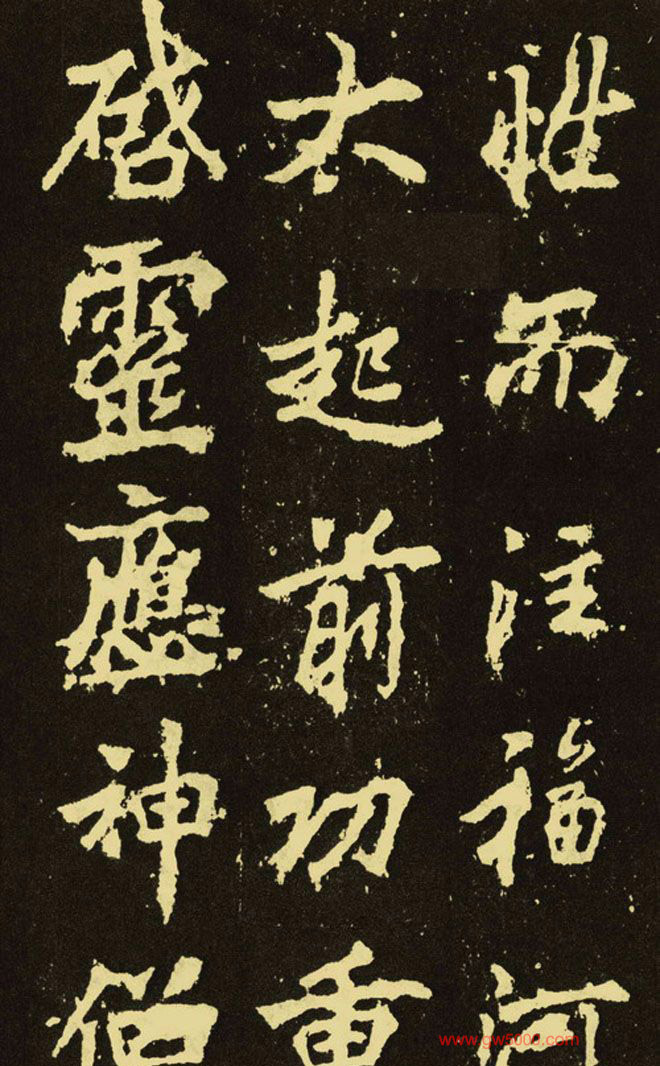 惟而注福河
太起前功重
啓靈應神僧
www.gw5000.com